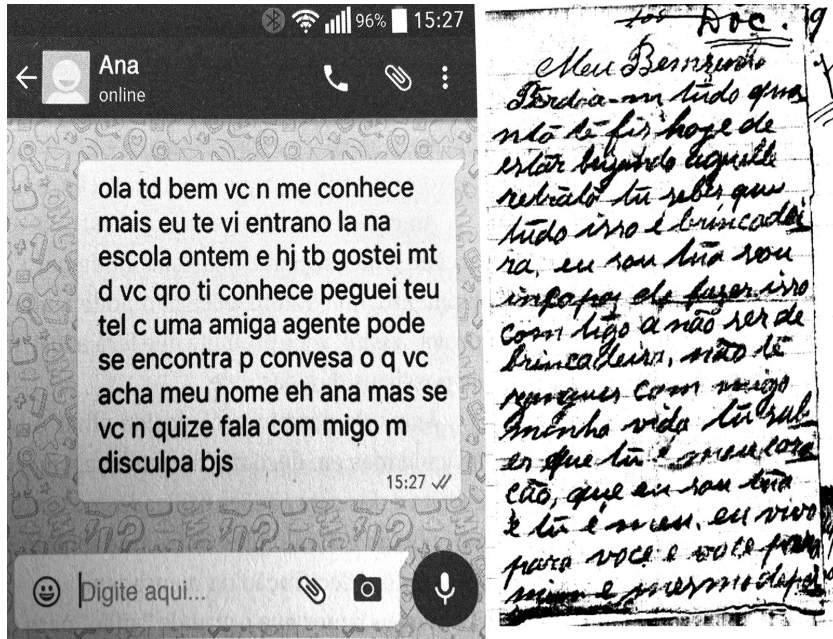 96% 15:27
Ana
online
ola td bem vc n me conhece
mais eu te vi entrano la na
escola ontem e hj tb gostei mt
d vc qro ti conhece peguei teu
tel c uma amiga agente pode
se encontra p convesa o q vc
acha meu nome eh ana mas se
vc n quize fala com migo m
disculpa bjs
15:27
Digite aqui...
Doc. 9
Meu Bemzinho
Perdoa-m tudo qua
nto te fis hoje de
estar beijando aquelle
retrato tu sabes que
tudo isso é brincadei
ra, eu sou tua sou
incapaz de fazer isso
com tigo a não ser de
brincadeira, não te
zangues com migo
minha vida tu sab
es que tu é meu cora
ção, que eu sou tua
e tu é meu, eu vivo
para voce e voce para
mim e mesmo depoi